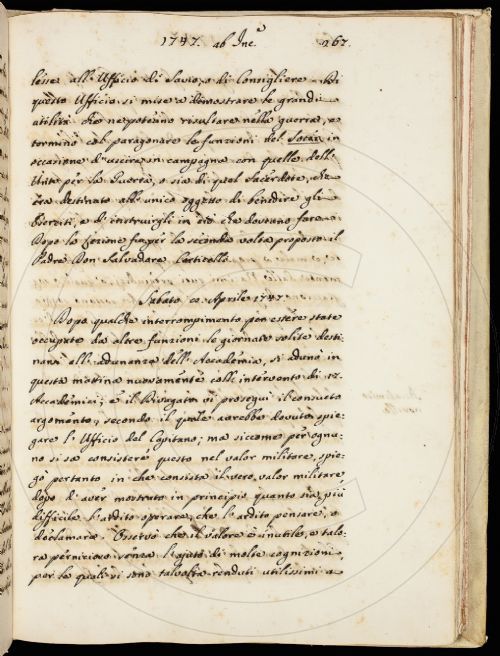 1747. ab Inc.e 267.
lesse all'Ufficio di Savio, o di Consigliere. Di
questo Ufficio si mise a dimostrare le grandi
utilità che ne poteano risultare nella guerra, e
terminò col paragonare le funzioni del
occasione d'uscire in campagna con quelle dell'
Unto per la Guerra, o sia di quel Sacerdote, che
era destinato all'unico oggetto di benedire gli
Eserciti, e d'instruirgli in ciò che doveano fare.
Dopo la lezione fu per la seconda volta proposto il
Padre Don Salvadore Corticelli.
Sabato Aprile 1747
Dopo qualche interrompimento per essere state
occupate da altre funzioni le giornate solite desti-
narsi all'adunanze dell'Accademia, si adunò in
questa mattina nuovamente coll'intervento di 12.
Accademici; e il Bisogato vi proseguì il consueto
argomento, secondo il quale avrebbe dovuto spie-
gare l'Ufficio del Capitano; ma siccome per ognu-
no si sa consistere questo nel valor militare, spie-
gò pertanto in che consista il vero valor militare
dopo d'aver mostrato in principio quanto sia più
difficile l'ardito operare, che l'ardito pensare, e
declamare. Osservò che il valore è inutile, e talo-
ra pernicioso senza l'ajuto di molte cognizioni,
per le quali vi sono talvolta renduti utilissimi a